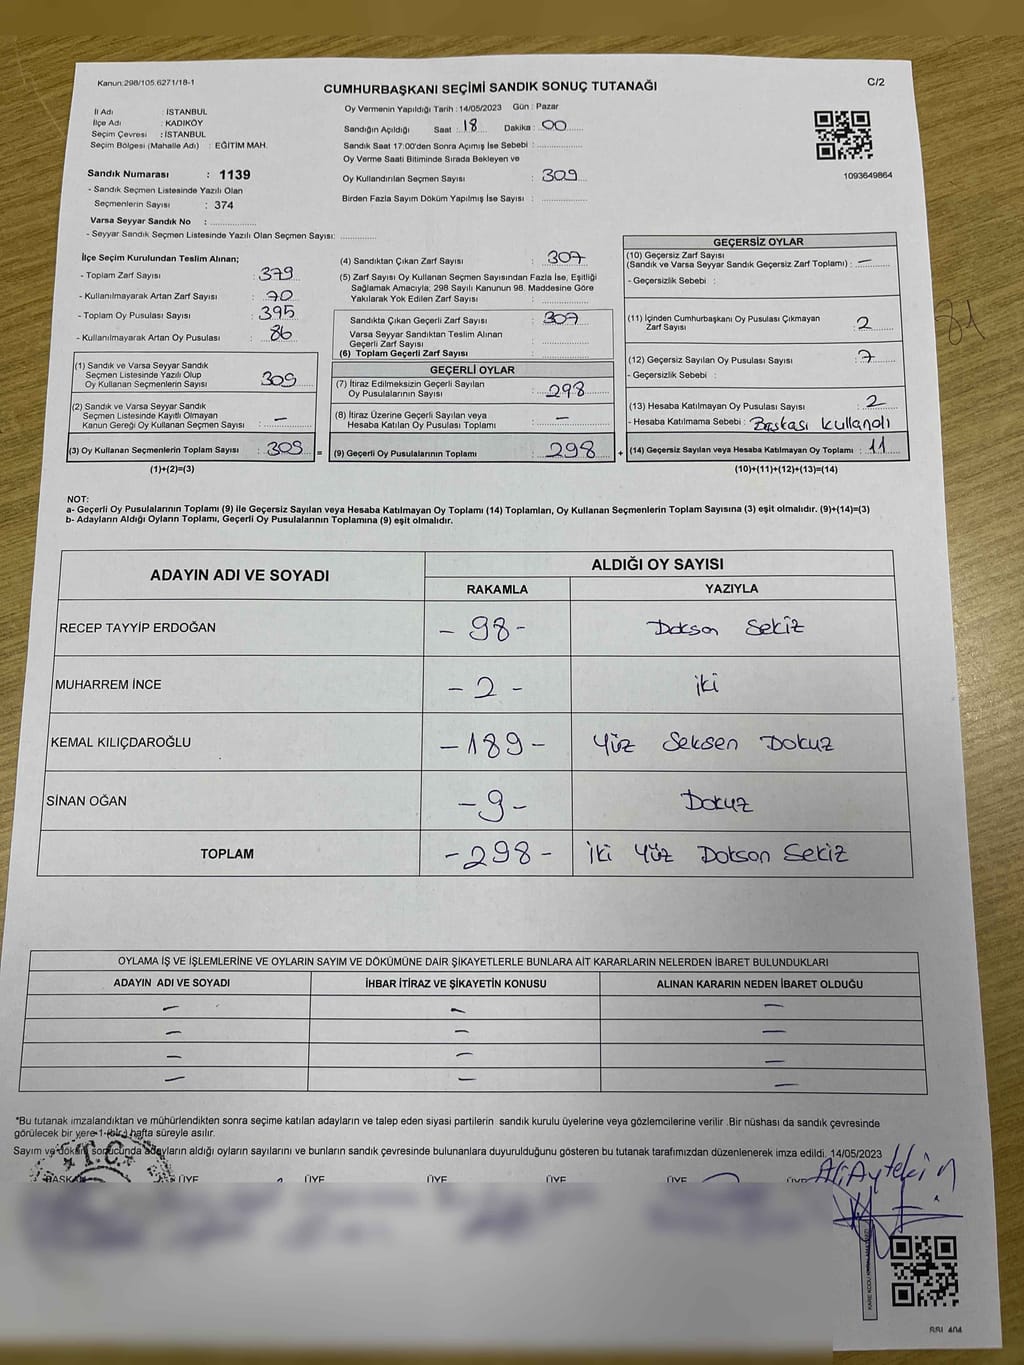 Kanun:298/105.6271/18-1
CUMHURBAŞKANI SEÇİMİ SANDIK SONUÇ TUTANAĞI
C/2
İl Adı : İSTANBUL
İlçe Adı : KADIKÖY
Seçim Çevresi : İSTANBUL
Seçim Bölgesi (Mahalle Adı) : EĞİTİM MAH.
Sandık Numarası : 1139
- Sandık Seçmen Listesinde Yazılı Olan
Seçmenlerin Sayısı : 374
Varsa Seyyar Sandık No :
- Seyyar Sandık Seçmen Listesinde Yazılı Olan Seçmen Sayısı:
Oy Vermenin Yapıldığı Tarih : 14/05/2023 Gün : Pazar
Sandığın Açıldığı Saat : 18 Dakika : 00
Sandık Saat 17:00'den Sonra Açımış İse Sebebi :
Oy Verme Saati Bitiminde Sırada Bekleyen ve
Oy Kullandırılan Seçmen Sayısı : 309
Birden Fazla Sayım Döküm Yapılmış İse Sayısı :
1093649864
İlçe Seçim Kurulundan Teslim Alınan;
- Toplam Zarf Sayısı : 379
- Kullanılmayarak Artan Zarf Sayısı : 70
- Toplam Oy Pusulası Sayısı : 395
- Kullanılmayarak Artan Oy Pusulası : 86
(1) Sandık ve Varsa Seyyar Sandık
Seçmen Listesinde Yazılı Olup
Oy Kullanan Seçmenlerin Sayısı : 309
(2) Sandık ve Varsa Seyyar Sandık
Seçmen Listesinde Kayıtlı Olmayan
Kanun Gereği Oy Kullanan Seçmen Sayısı : —
(3) Oy Kullanan Seçmenlerin Toplam Sayısı : 309 =
(1)+(2)=(3)
(4) Sandıktan Çıkan Zarf Sayısı : 307
(5) Zarf Sayısı Oy Kullanan Seçmen Sayısından Fazla İse, Eşitliği
Sağlamak Amacıyla; 298 Sayılı Kanunun 98. Maddesine Göre
Yakılarak Yok Edilen Zarf Sayısı :
Sandıkta Çıkan Geçerli Zarf Sayısı : 307
Varsa Seyyar Sandıktan Teslim Alınan
Geçerli Zarf Sayısı :
(6) Toplam Geçerli Zarf Sayısı :
GEÇERLİ OYLAR
(7) İtiraz Edilmeksizin Geçerli Sayılan
Oy Pusulalarının Sayısı : 298
(8) İtiraz Üzerine Geçerli Sayılan veya
Hesaba Katılan Oy Pusulası Toplamı : —
(9) Geçerli Oy Pusulalarının Toplamı : 298 +
GEÇERSİZ OYLAR
(10) Geçersiz Zarf Sayısı
(Sandık ve Varsa Seyyar Sandık Geçersiz Zarf Toplamı) : —
- Geçersizlik Sebebi :
(11) İçinden Cumhurbaşkanı Oy Pusulası Çıkmayan
Zarf Sayısı : 2
(12) Geçersiz Sayılan Oy Pusulası Sayısı : 7
- Geçersizlik Sebebi :
(13) Hesaba Katılmayan Oy Pusulası Sayısı : 2
- Hesaba Katılmama Sebebi : Başkası kullandı
(14) Geçersiz Sayılan veya Hesaba Katılmayan Oy Toplamı : 11
(10)+(11)+(12)+(13)=(14)
NOT:
a- Geçerli Oy Pusulalarının Toplamı (9) ile Geçersiz Sayılan veya Hesaba Katılmayan Oy Toplamı (14) Toplamları, Oy Kullanan Seçmenlerin Toplam Sayısına (3) eşit olmalıdır. (9)+(14)=(3)
b- Adayların Aldığı Oyların Toplamı, Geçerli Oy Pusulalarının Toplamına (9) eşit olmalıdır.
ADAYIN ADI VE SOYADI
ALDIĞI OY SAYISI
RAKAMLA YAZIYLA
RECEP TAYYİP ERDOĞAN - 98 - Dokson Sekiz
MUHARREM İNCE - 2 - iki
KEMAL KILIÇDAROĞLU - 189 - Yüz Seksen Dokuz
SİNAN OĞAN - 9 - Dokuz
TOPLAM - 298 - İki Yüz Dokson Sekiz
OYLAMA İŞ VE İŞLEMLERİNE VE OYLARIN SAYIM VE DÖKÜMÜNE DAİR ŞİKAYETLERLE BUNLARA AİT KARARLARIN NELERDEN İBARET BULUNDUKLARI
ADAYIN ADI VE SOYADI İHBAR İTİRAZ VE ŞİKAYETİN KONUSU ALINAN KARARIN NEDEN İBARET OLDUĞU
— — —
— — —
— — —
— — —
*Bu tutanak imzalandıktan ve mühürlendikten sonra seçime katılan adayların ve talep eden siyasi partilerin sandık kurulu üyelerine veya gözlemcilerine verilir .Bir nüshası da sandık çevresinde
görülecek bir yere 1 (bir) hafta süreyle asılır.
Sayım ve döküm sonucunda adayların aldığı oyların sayılarını ve bunların sandık çevresinde bulunanlara duyurulduğunu gösteren bu tutanak tarafımızdan düzenlenerek imza edildi. 14/05/2023
T.C.
ÜYE ÜYE ÜYE ÜYE ÜYE
Ali Aytekin